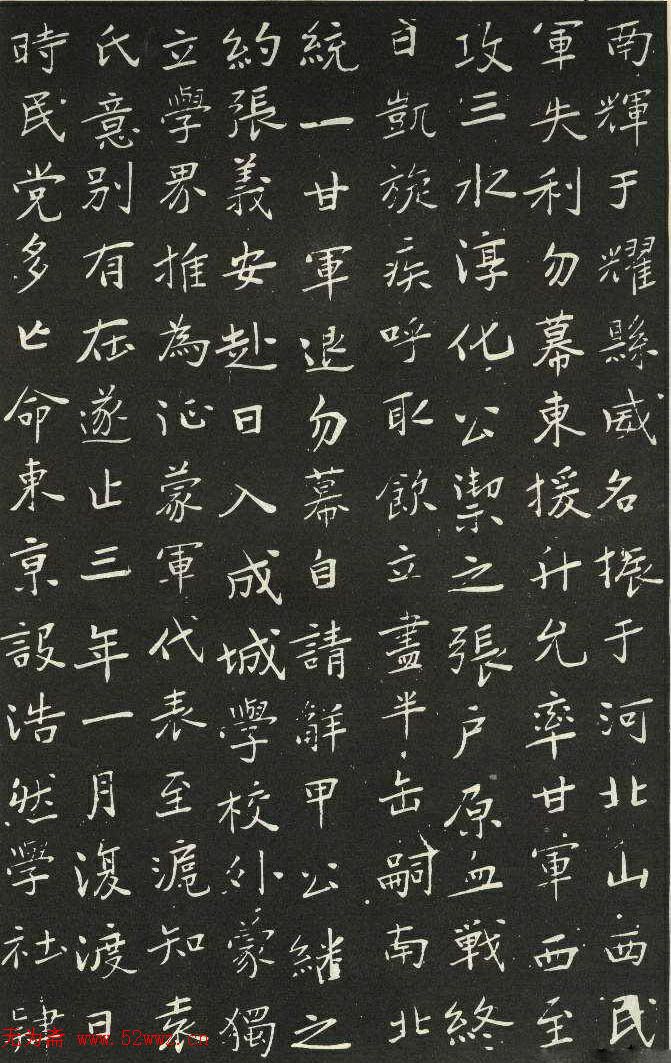 南輝于耀縣威名振于河北山西民
軍失利勿幕東援升允率甘軍西至
攻三水淳化公禦之張戶原血戰終
日凱旋疾呼取飲立盡半缶嗣南北
統一甘軍退勿幕自請辭甲公繼之
約張義安赴日入成城學校外蒙獨
立學界推為征蒙軍代表至滬知袁
氏意別有在遂止三年一月復渡日
時民党多亡命東京設浩然學社肄
无为斋 www.52wwz.cn